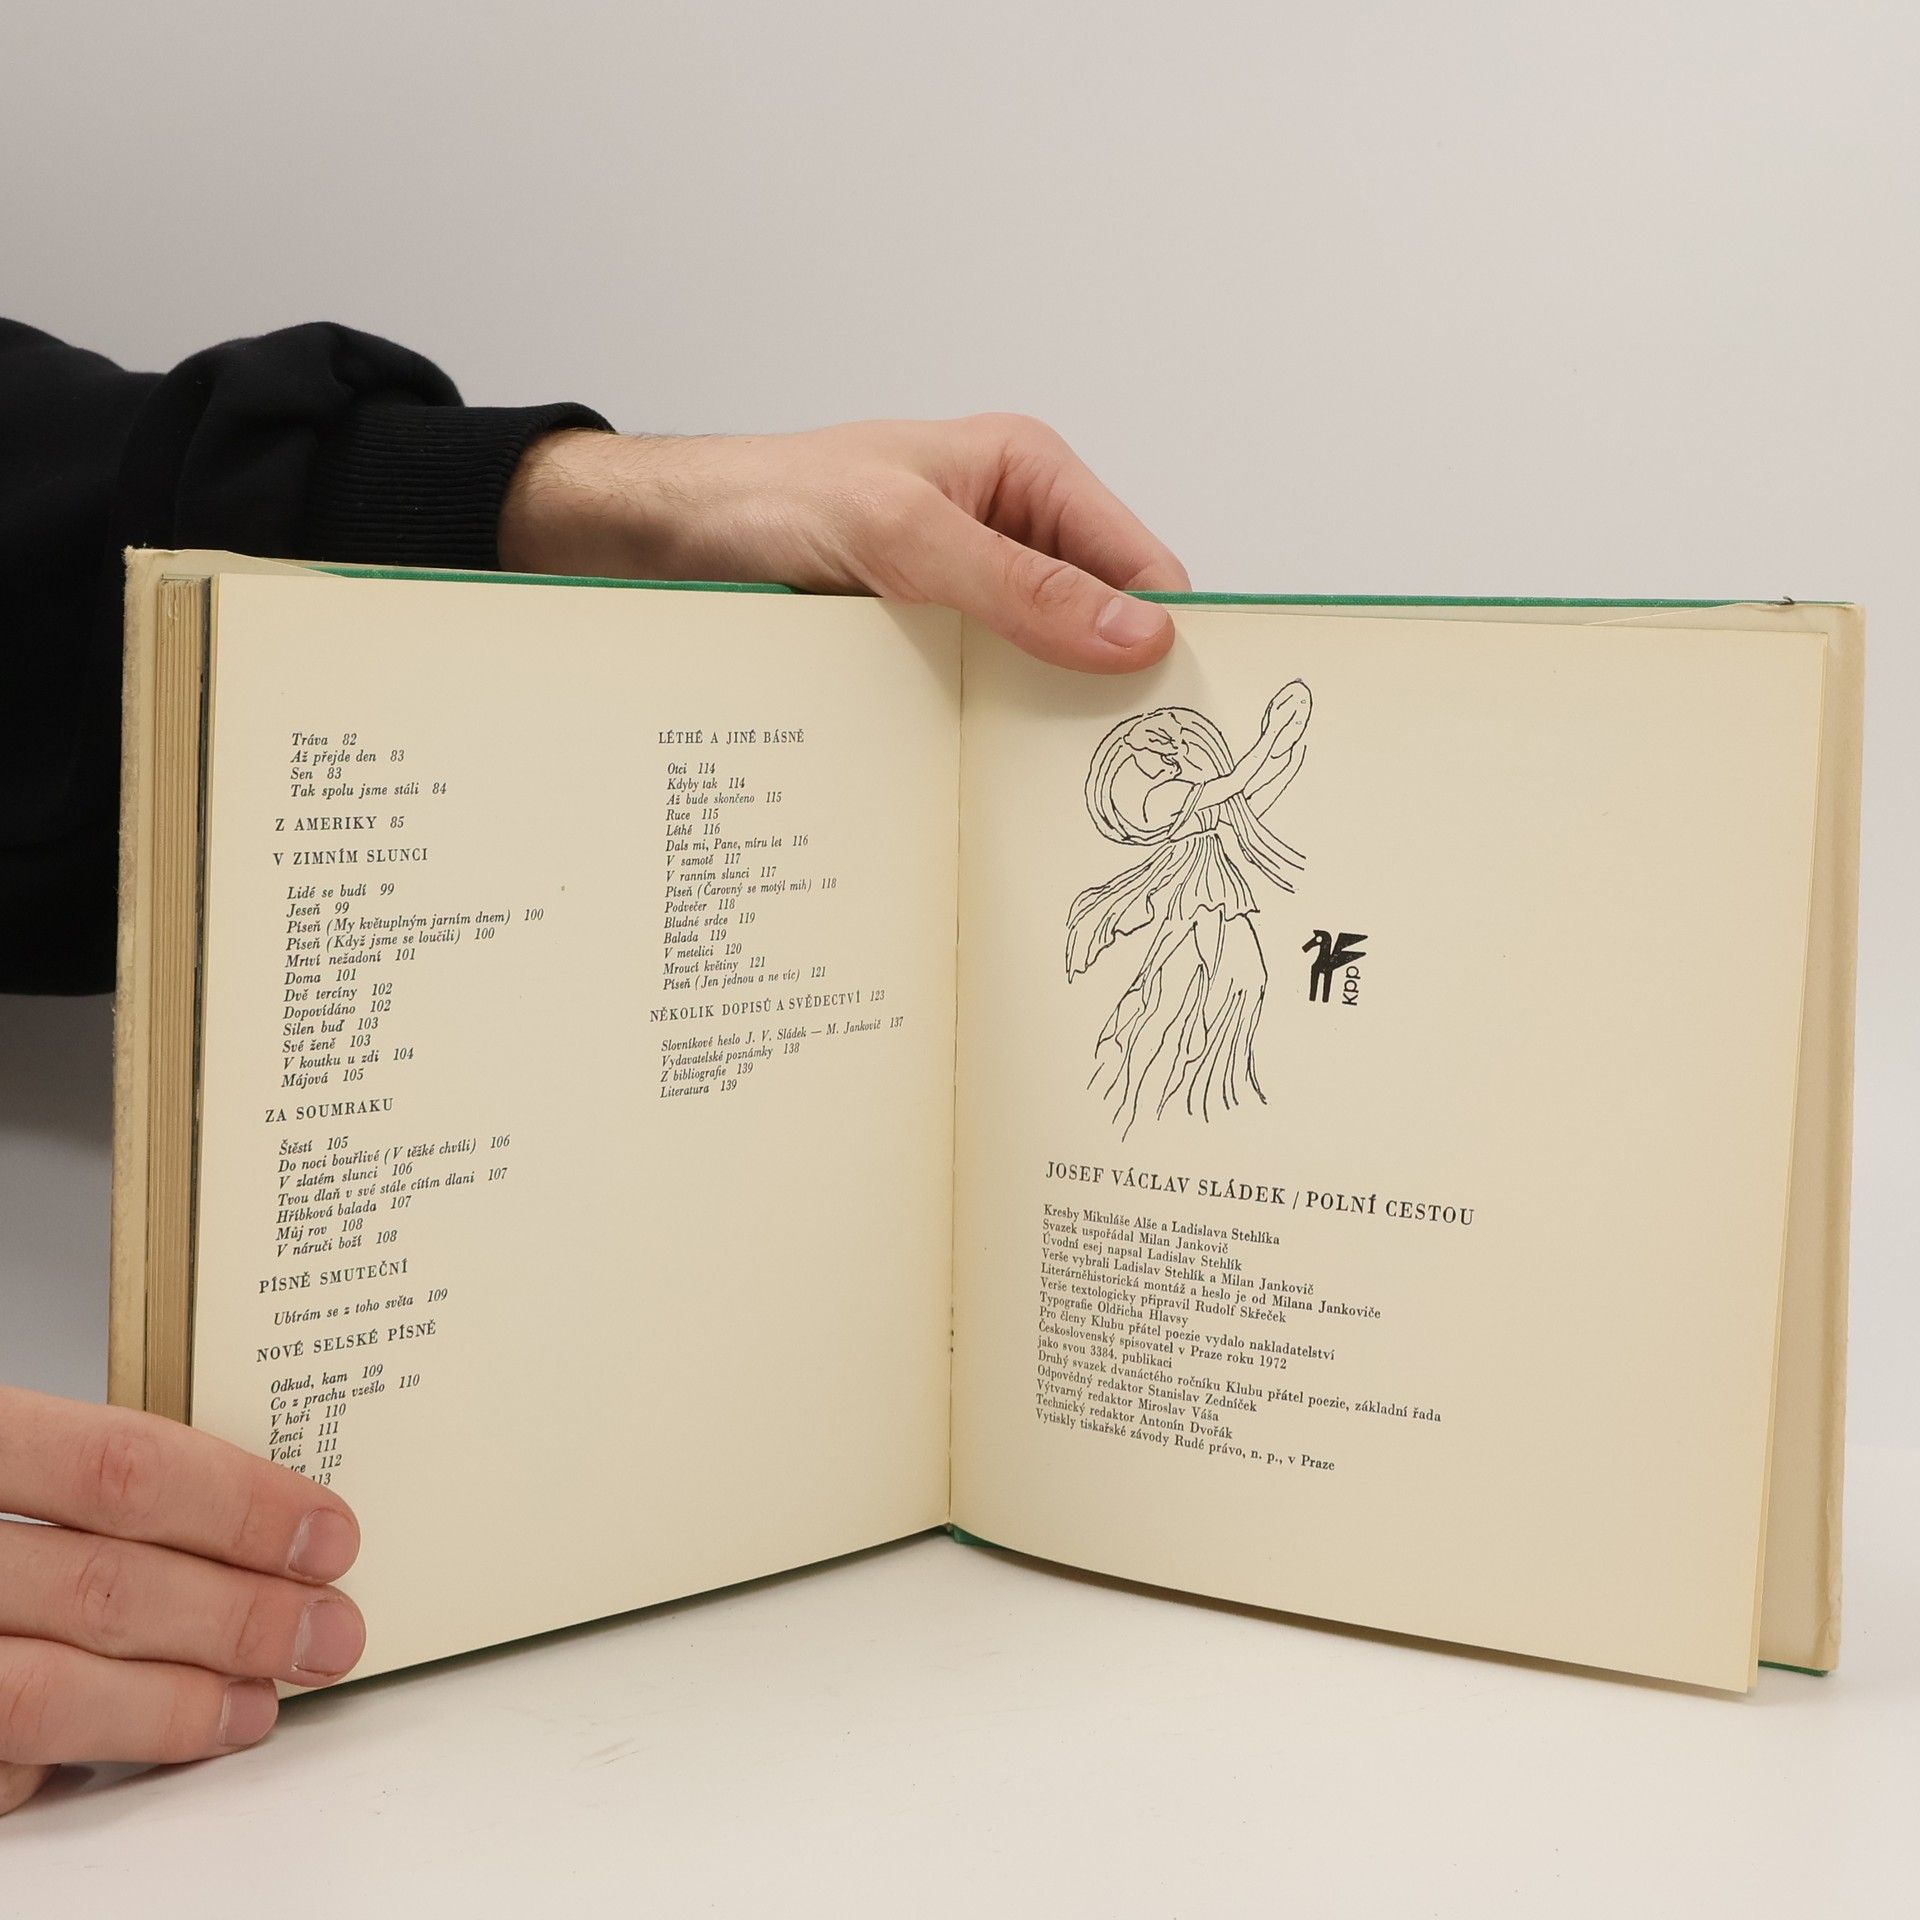 Tráva 82
Až přejde den 83
Sen 83
Tak spolu jsme stáli 84
Z AMERIKY 85
V ZIMNÍM SLUNCI
Lidé se budí 99
Jeseň 99
Píseň (My květuplným jarním dnem) 100
Píseň (Když jsme se loučili) 100
Mrtví nežadoní 101
Doma 101
Dvě tercíny 102
Dopovídáno 102
Silen buď 103
Své ženě 103
V koutku u zdi 104
Májová 105
ZA SOUMRAKU
Štěstí 105
Do noci bouřlivé (V těžké chvíli) 106
V zlatém slunci 106
Tvou dlaň v své stále cítím dlani 107
Hříbková balada 107
Můj rov 108
V náručí boží 108
PÍSNĚ SMUTEČNÍ
Ubírám se z toho světa 109
NOVÉ SELSKÉ PÍSNĚ
Odkud, kam 109
Co z prachu vzešlo 110
V hoři 110
Ženci 111
Volci 111
112
113
LÉTHÉ A JINÉ BÁSNĚ
Otci 114
Kdyby tak 114
Až bude skončeno 115
Ruce 115
Léthé 116
Dals mi, Pane, míru let 116
V samotě 117
V ranním slunci 117
Píseň (Čarovný se motýl mih) 118
Podvečer 118
Bludné srdce 119
Balada 119
V metelici 120
Mroucí květiny 121
Píseň (Jen jednou a ne víc) 121
NĚKOLIK DOPISŮ A SVĚDECTVÍ 123
Slovníkové heslo J. V. Sládek — M. Jankovič 137
Vydavatelské poznámky 138
Z bibliografie 139
Literatura 139
kpp
JOSEF VÁCLAV SLÁDEK / POLNÍ CESTOU
Kresby Mikuláše Alše a Ladislava Stehlíka
Svazek uspořádal Milan Jankovič
Úvodní esej napsal Ladislav Stehlík
Verše vybrali Ladislav Stehlík a Milan Jankovič
Literárněhistorická montáž a heslo je od Milana Jankoviče
Verše textologicky připravil Rudolf Skřeček
Typografie Oldřicha Hlavsy
Pro členy Klubu přátel poezie vydalo nakladatelství
Československý spisovatel v Praze roku 1972
jako svou 3384. publikaci
Druhý svazek dvanáctého ročníku Klubu přátel poezie, základní řada
Odpovědný redaktor Stanislav Zedníček
Výtvarný redaktor Miroslav Váša
Technický redaktor Antonín Dvořák
Vytiskly tiskařské závody Rudé právo, n. p., v Praze